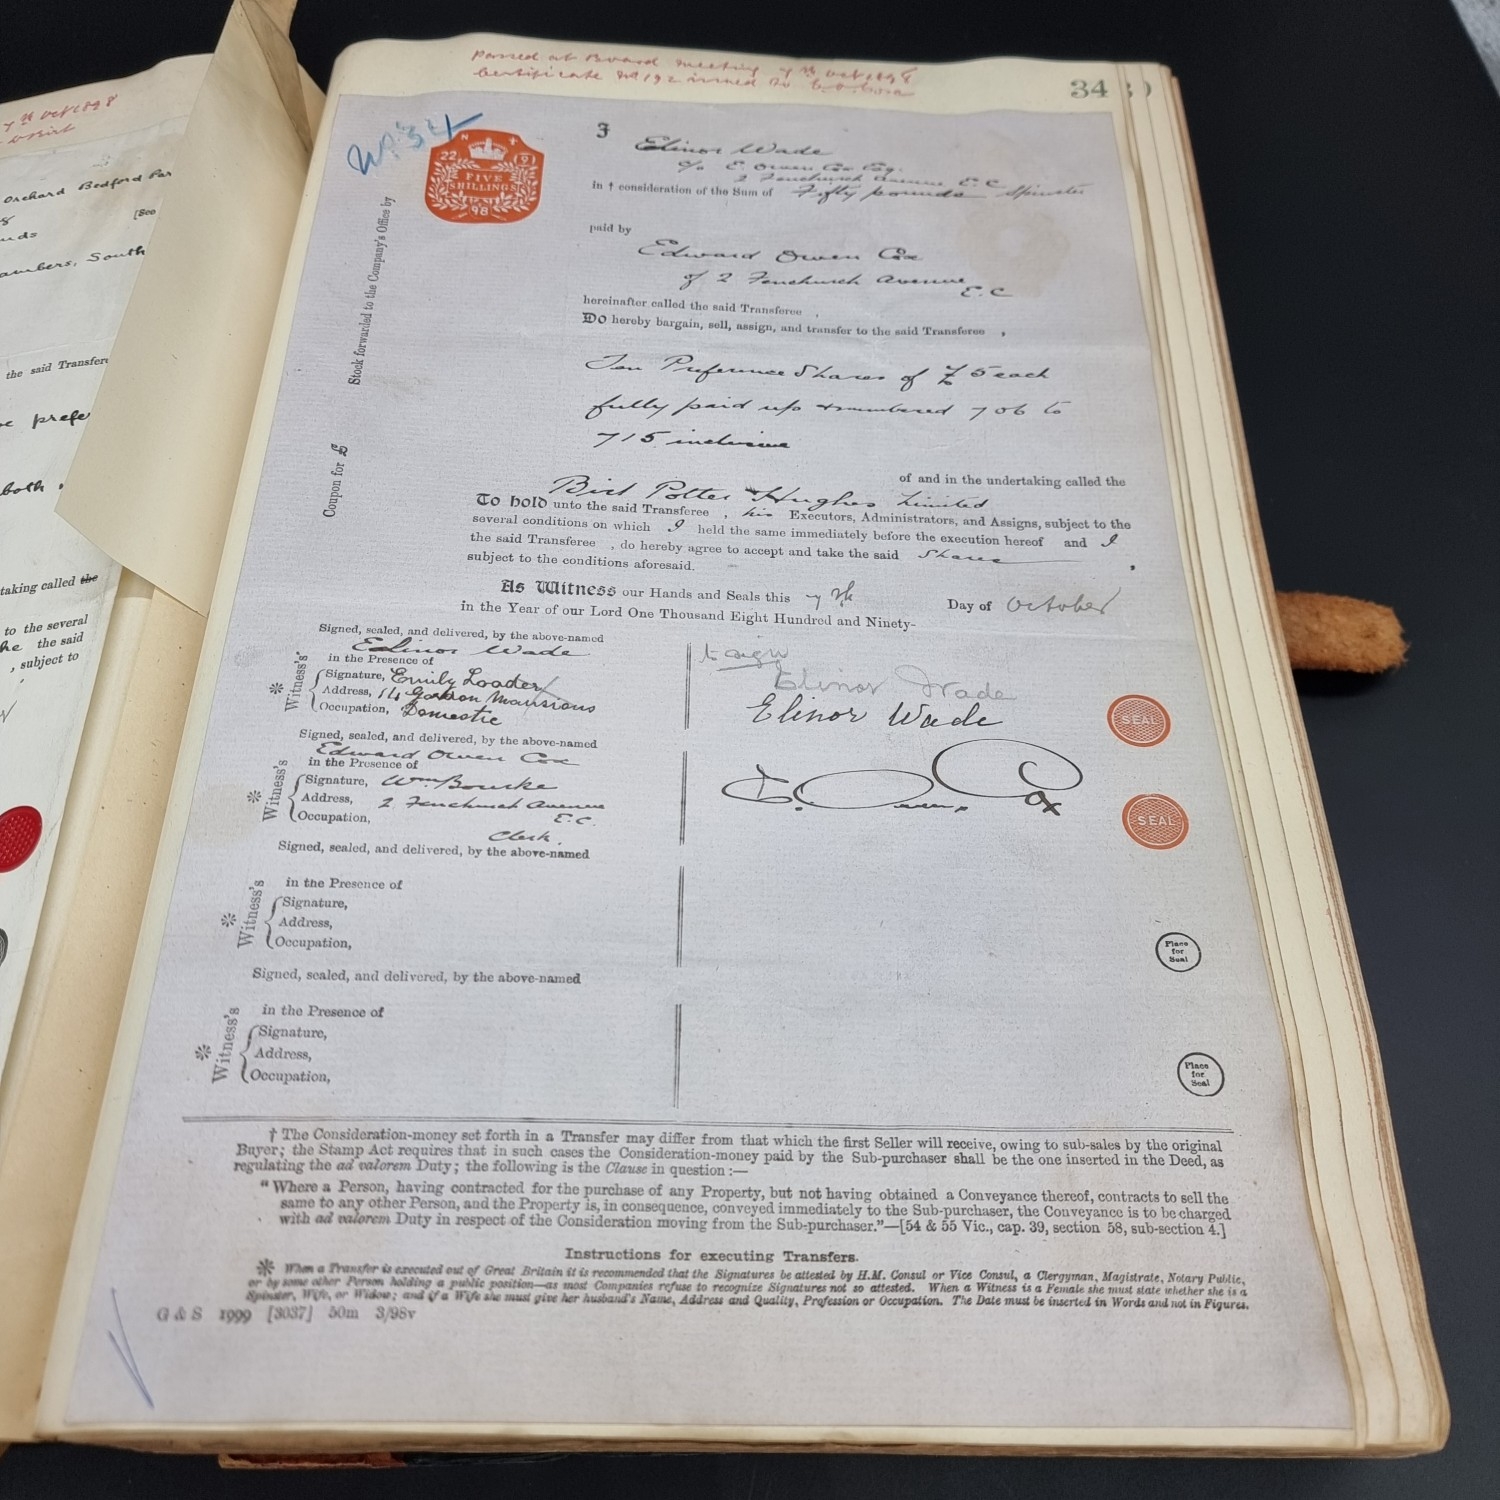 7th Oct 1898
Orchard Bedford Par
[See
ambers, South
the said Transfer
e prefe
both
taking called the
to the several
he the said
, subject to
Passed at Board meeting 7th Oct 1898
Certificate No 192 issued to E. O. Cox
34
No. 34
22 9
FIVE
SHILLINGS
98
Stock forwarded to the Company's Office by
Coupon for £
I Elinor Wade
c/o E. Owen Cox Esq.
2 Fenchurch Avenue E.C. Spinster
in † consideration of the Sum of Fifty pounds
paid by
Edward Owen Cox
of 2 Fenchurch Avenue
E.C
hereinafter called the said Transferee ,
Do hereby bargain, sell, assign, and transfer to the said Transferee ,
Ten Preference Shares of £5 each
fully paid up & numbered 706 to
715 inclusive
of and in the undertaking called the
Birt Potter & Hughes Limited
To hold unto the said Transferee , his Executors, Administrators, and Assigns, subject to the
several conditions on which I held the same immediately before the execution hereof and I
the said Transferee , do hereby agree to accept and take the said Shares ,
subject to the conditions aforesaid.
As Witness our Hands and Seals this 7th Day of October
in the Year of our Lord One Thousand Eight Hundred and Ninety-
Signed, sealed, and delivered, by the above-named
Elinor Wade
in the Presence of
* Witness's
Signature, Emily Loader
Address, 14 Gordon Mansions
Occupation, Domestic
to sign
Elinor Wade
Elinor Wade
SEAL
Signed, sealed, and delivered, by the above-named
Edward Owen Cox
in the Presence of
* Witness's
Signature, Wm Bourke
Address, 2 Fenchurch Avenue
E.C.
Occupation,
Clerk.
E. Owen Cox
SEAL
Signed, sealed, and delivered, by the above-named
in the Presence of
* Witness's
Signature,
Address,
Occupation,
Place
for
Seal
Signed, sealed, and delivered, by the above-named
in the Presence of
* Witness's
Signature,
Address,
Occupation,
Place
for
Seal
† The Consideration-money set forth in a Transfer may differ from that which the first Seller will receive, owing to sub-sales by the original
Buyer; the Stamp Act requires that in such cases the Consideration-money paid by the Sub-purchaser shall be the one inserted in the Deed, as
regulating the ad valorem Duty; the following is the Clause in question :—
"Where a Person, having contracted for the purchase of any Property, but not having obtained a Conveyance thereof, contracts to sell the
same to any other Person, and the Property is, in consequence, conveyed immediately to the Sub-purchaser, the Conveyance is to be charged
with ad valorem Duty in respect of the Consideration moving from the Sub-purchaser."—[54 & 55 Vic., cap. 39, section 58, sub-section 4.]
Instructions for executing Transfers.
* When a Transfer is executed out of Great Britain it is recommended that the Signatures be attested by H.M. Consul or Vice Consul, a Clergyman, Magistrate, Notary Public,
or by some other Person holding a public position—as most Companies refuse to recognize Signatures not so attested. When a Witness is a Female she must state whether she is a
Spinster, Wife, or Widow; and if a Wife she must give her husband's Name, Address and Quality, Profession or Occupation. The Date must be inserted in Words and not in Figures.
G & S 1999 [3037] 50m 3/98v